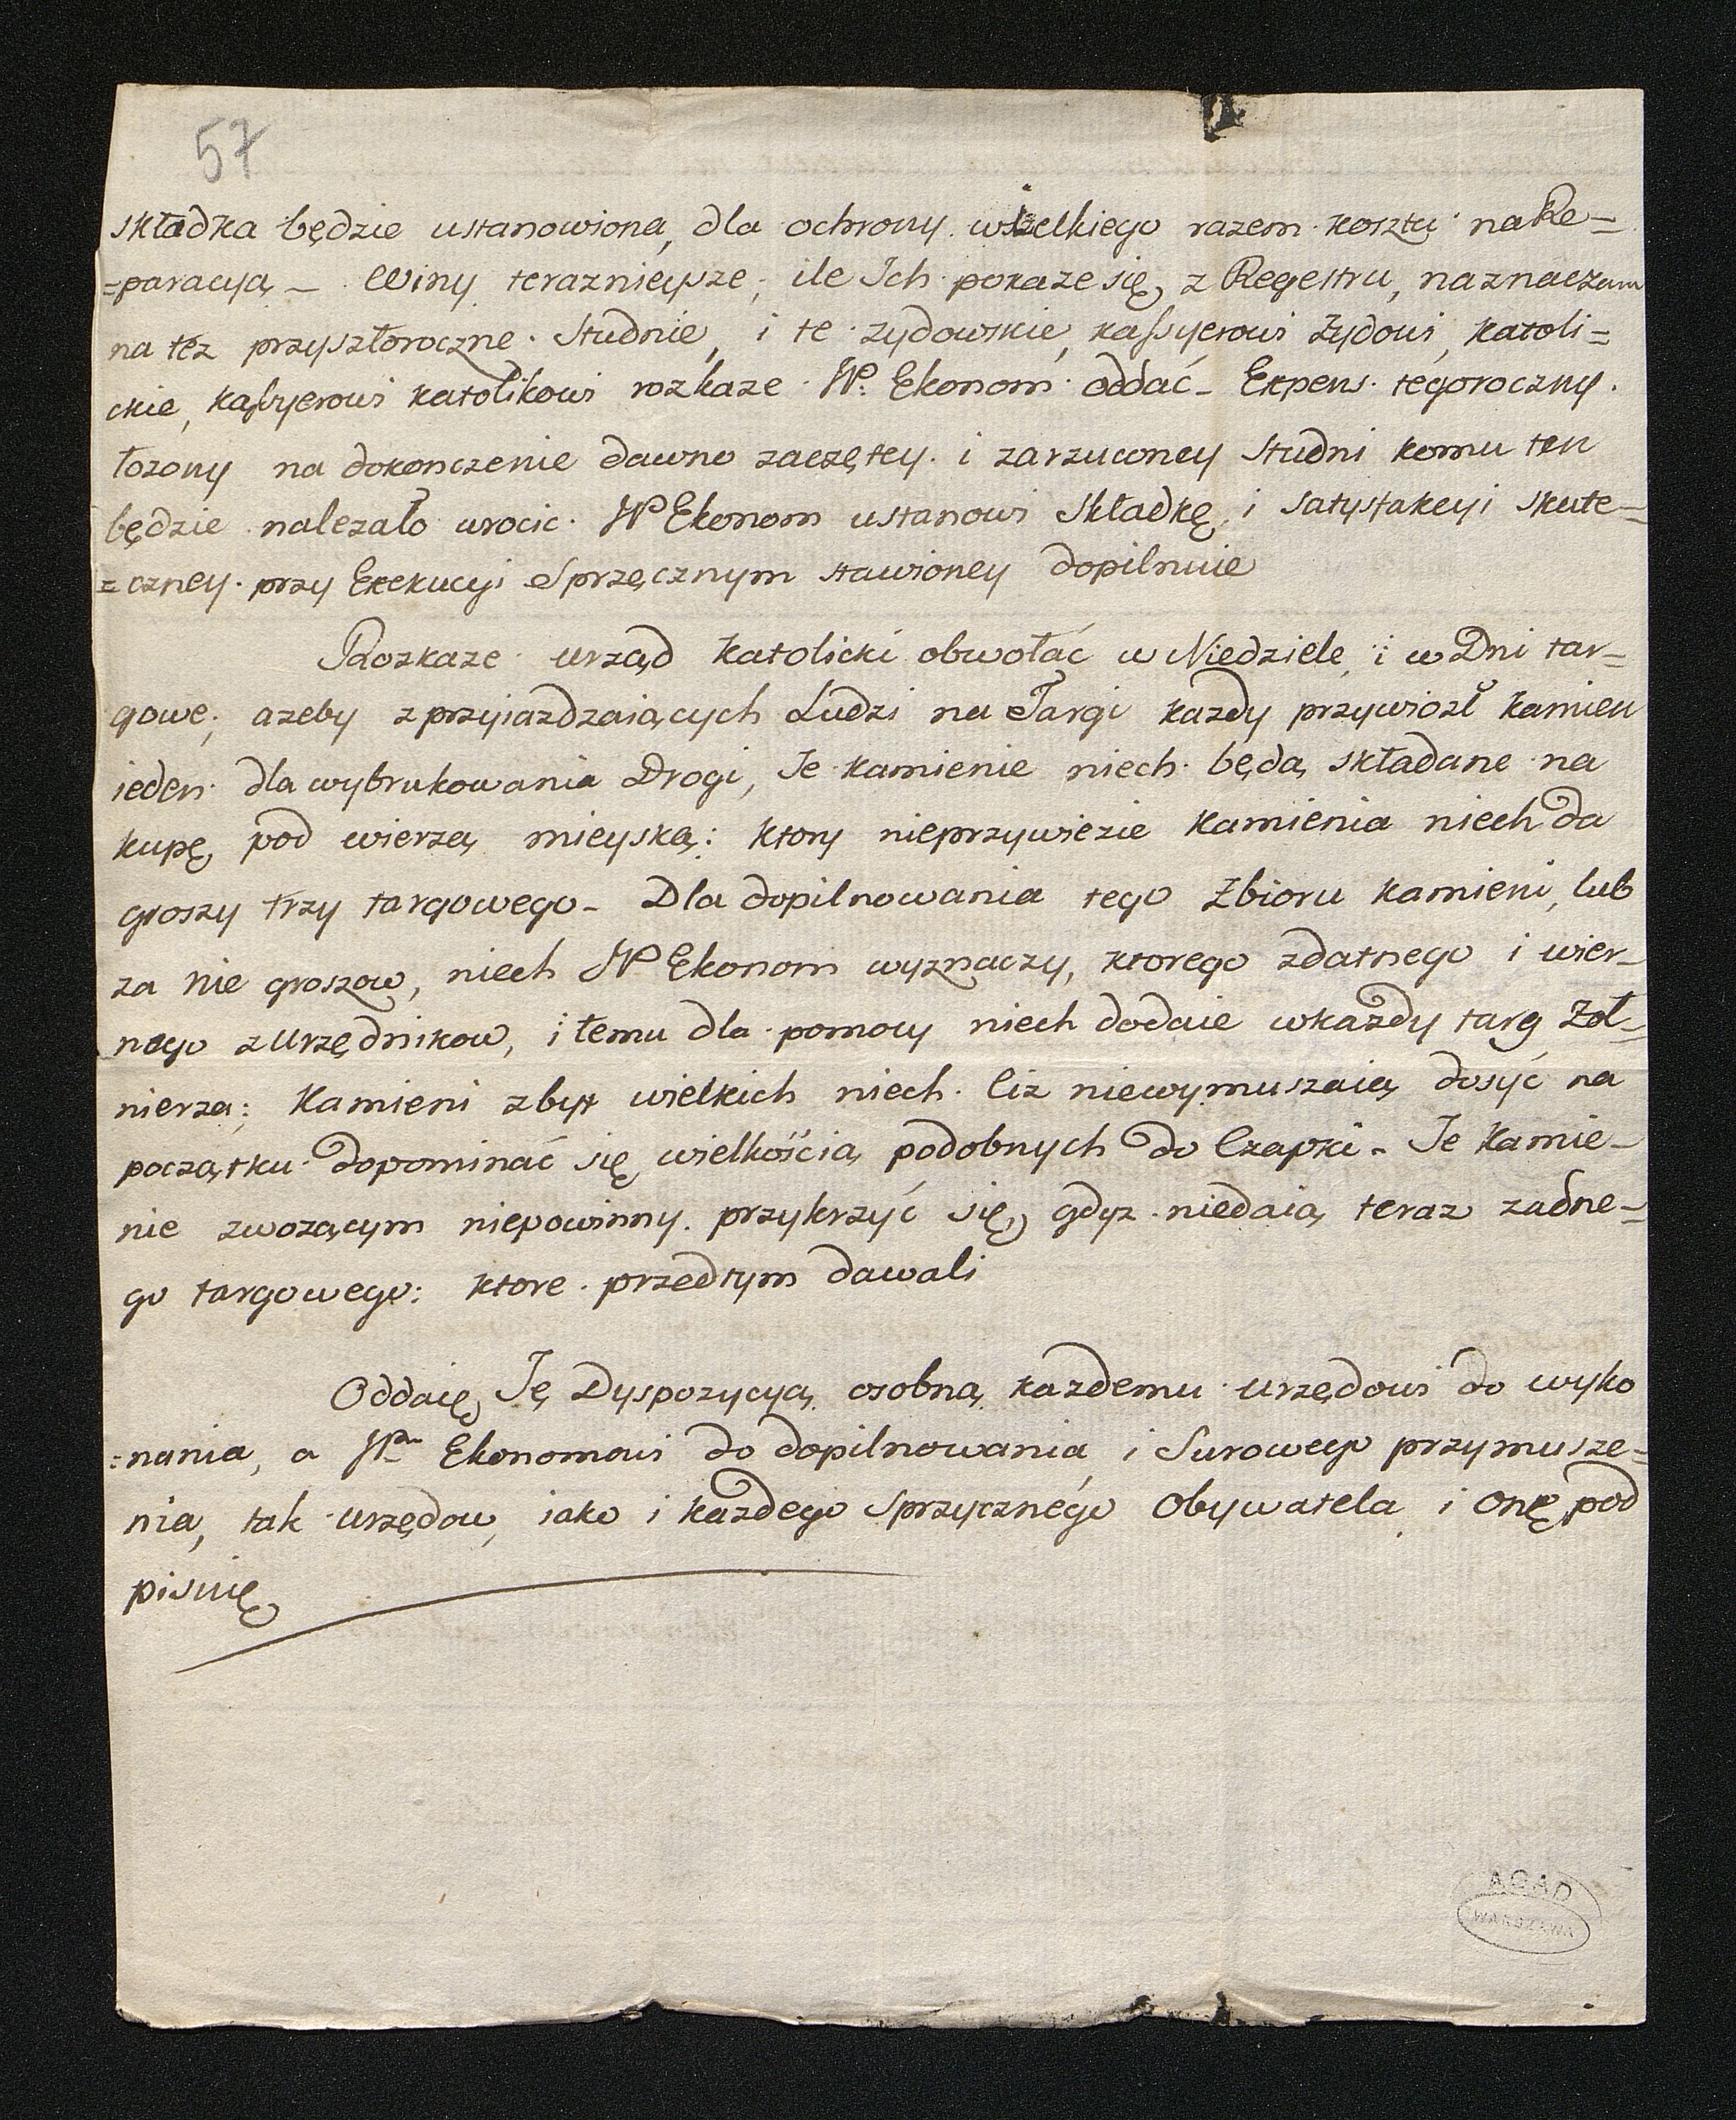 57
składka będzie ustanowiona, dla ochrony wszelkiego razem kosztu na Re=
=paracyą – Winy teraznieysze, ile Ich pokaze się z Regestru, naznaczam
na tez przyszłoroczne Studnie, i te zydowskie, kassyerowi Zydowi, katoli=
ckie, kassyerowi katolikowi rozkaze W. Ekonom oddać – Expens tegoroczny
łozony na dokonczenie dawno zaczętey i zarzuconey Studni komu ten
będzie nalezało wrocic WP Ekonom ustanowi Składkę, i satysfakcyi skute=
=czney przy Exekucyi Sprzecznym stawioney dopilnuie
Rozkaze urząd katolicki obwołać w Niedziele, i w Dni tar=
gowe, azeby z przyiazdzaiących Ludzi na Targi kazdy przywiozł kamien
ieden dla wybrukowania Drogi, Te kamienie niech będą składane na
kupę pod wierzą mieyską: ktory nieprzywiezie kamienia niech da
groszy trzy targowego – Dla dopilnowania tego Zbioru kamieni, lub
za nie groszow, niech WP Ekonom wyznaczy, ktorego zdatnego i wier=
nego z Urzędnikow, i temu dla pomocy niech dodaie w kazdy targ Zoł=
nierza; Kamieni zbyt wielkich niech Ciz niewymuszaią dosyć na
początku dopominać się wielkością podobnych do Czapki – Te kamie=
nie zwozącym niepowinny przykrzyć się, gdyz niedaią teraz zadne=
go targowego: ktore przedtym dawali
Oddaię Tę Dyspozycyą osobną kazdemu urzędowi do wyko
=nania, a WPu Ekonomowi do dopilnowania i Surowego przymusze=
nia, tak urzędow, iako i kazdego Sprzycznego Obywatela i onę pod
pisuię
AGAD
WARSZAWA